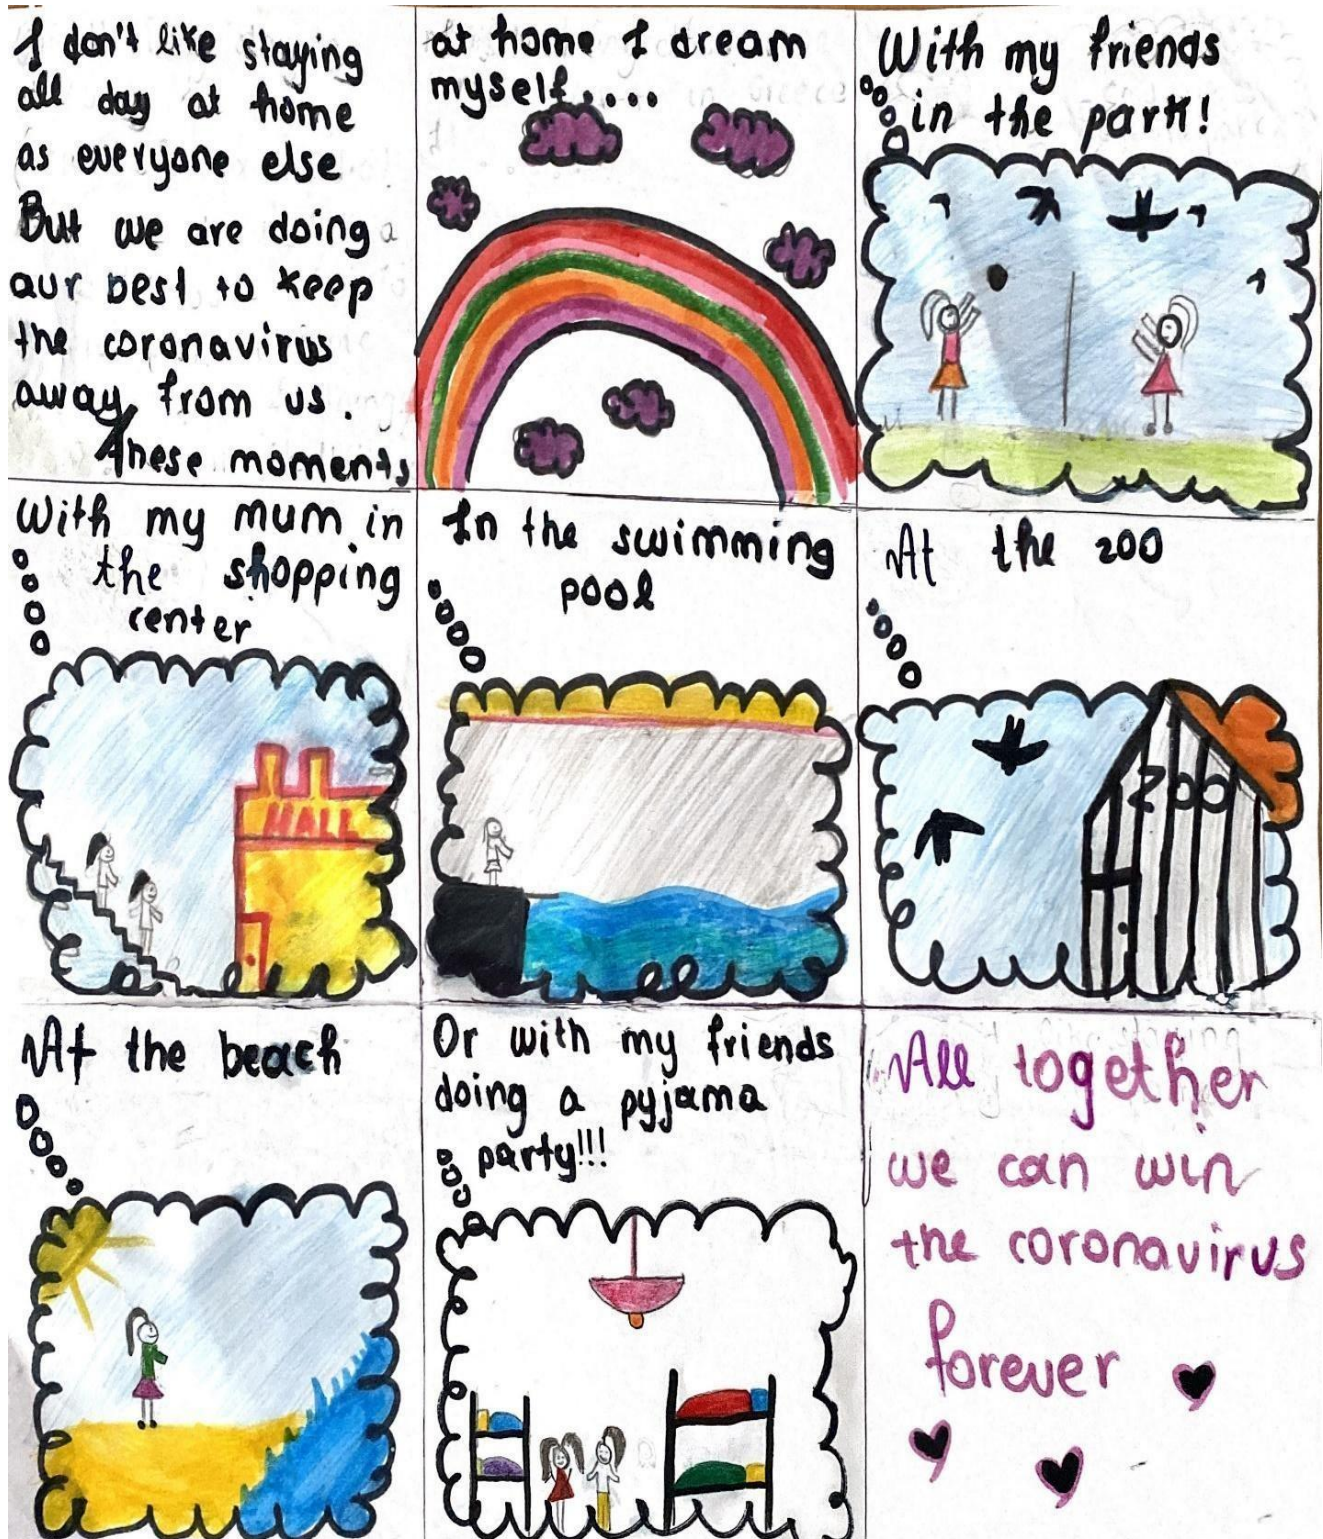 I don't like staying
all day at home
as everyone else
But we are doing
aur best to keep
the coronavirus
away from us.
These moments
at home I dream
myself....
With my friends
in the park!
With my mum in
the shopping
center
MALL
In the swimming
pool
At the zoo
ZOO
At the beach
Or with my friends
doing a pyjama
party!!!
All together
we can win
the coronavirus
forever